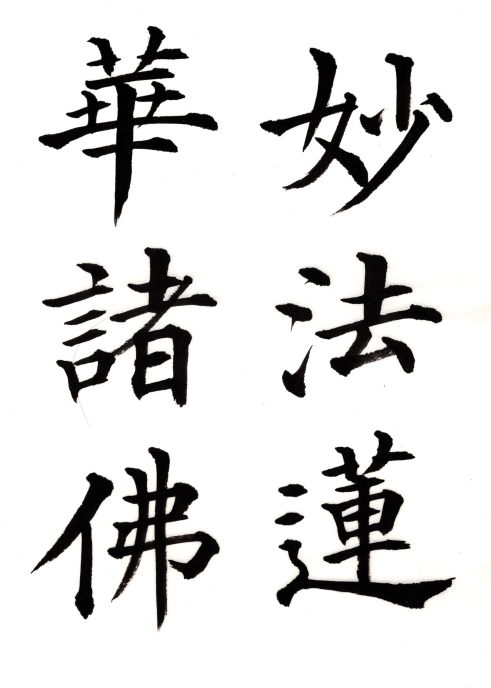 妙法蓮
華諸佛